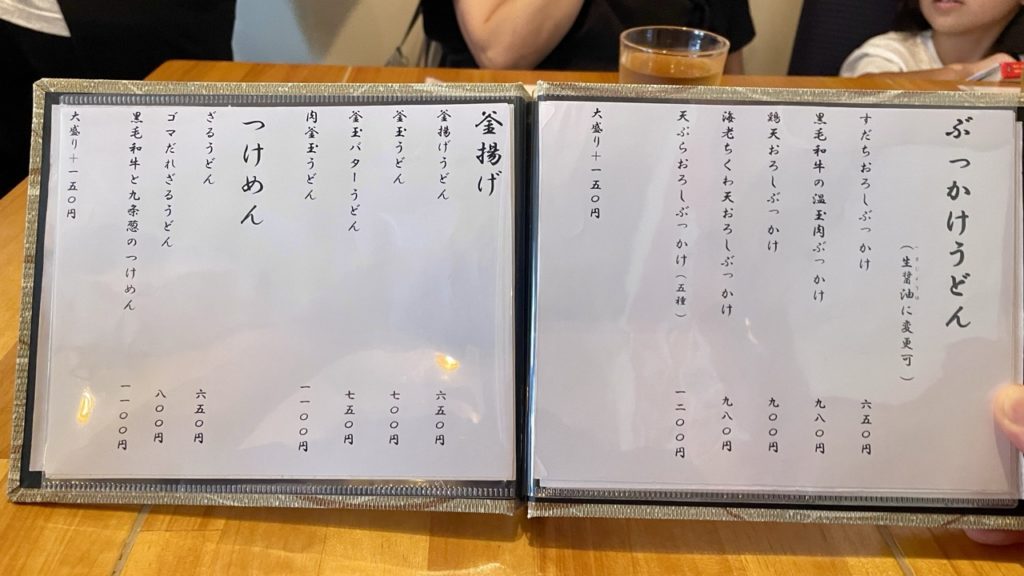 ぶっかけうどん
（生醤油に変更可）
すだちおろしぶっかけ 六五〇円
黒毛和牛の温玉肉ぶっかけ 九八〇円
鶏天おろしぶっかけ 九〇〇円
海老ちくわ天おろしぶっかけ 九八〇円
天ぷらおろしぶっかけ（五種） 一二〇〇円
大盛り＋一五〇円
釜揚げ
釜揚げうどん 六五〇円
釜玉うどん 七〇〇円
釜玉バターうどん 七五〇円
肉釜玉うどん 一一〇〇円
つけめん
ざるうどん 六五〇円
ゴマだれざるうどん 八〇〇円
黒毛和牛と九条葱のつけめん 一一〇〇円
大盛り＋一五〇円